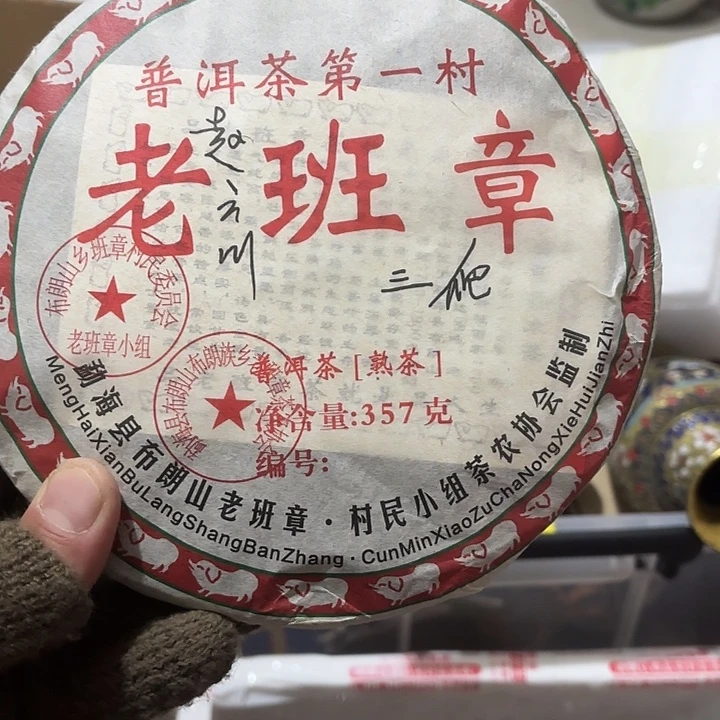 普洱茶第一村
老班章
三爬
布朗山乡班章村民委员会
老班章小组
普洱茶[熟茶]
净含量:357克
编号:
勐海县布朗山老班章·村民小组茶农协会监制
MengHaiXianBuLangShangBanZhang·CunMinXiaoZuChaNongXieHuiJianZhi